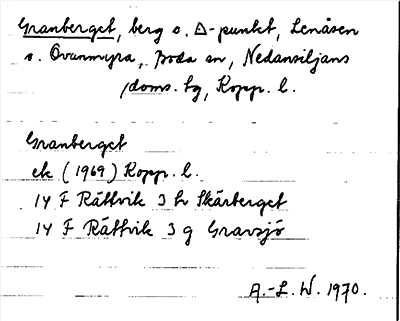 Granberget, berg o. Δ-punkt, Lenåsen
s. Ovanmyra, Boda sn, Nedansiljans
doms. tg, Kopp. l.
Granberget
ek (1969) Kopp. l.
14 F Rättvik 3 h Skärberget
14 F Rättvik 3 g Gravsjö
A.-L. W. 1970.